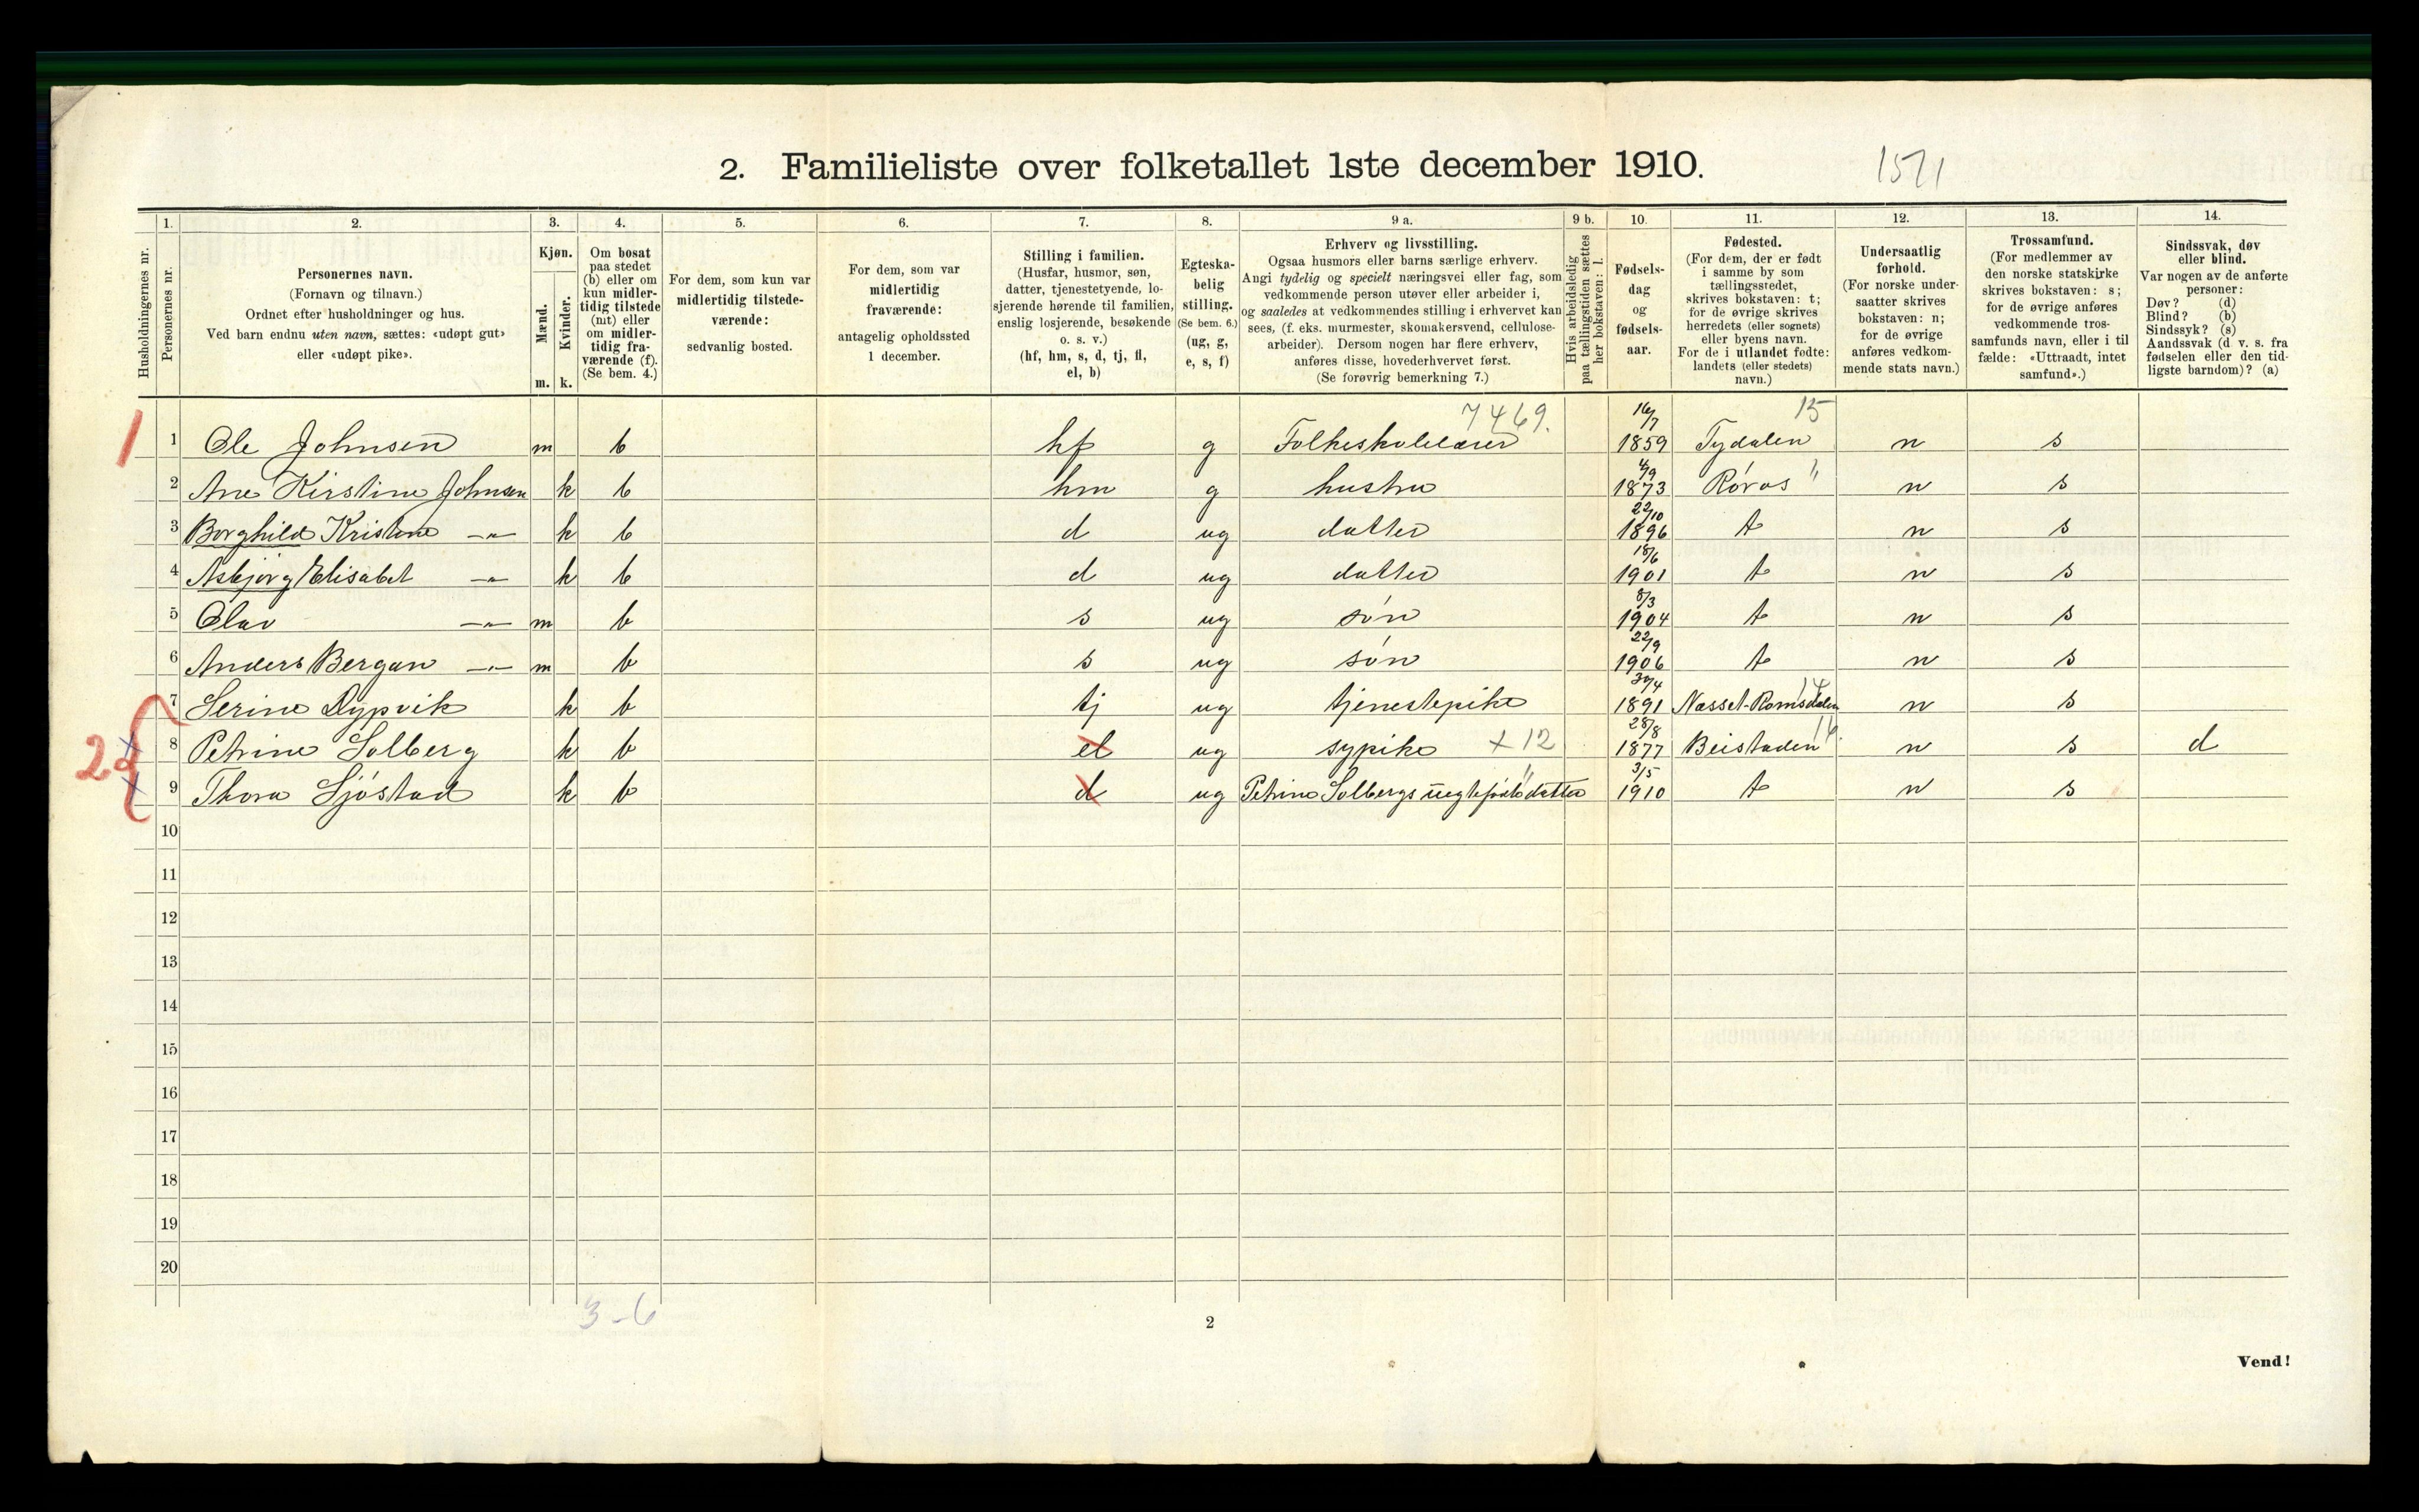 2. Familieliste over folketallet 1ste december 1910.
1571
1. 2. 3. 4. 5. 6. 7. 8. 9 a. 9 b. 10. 11. 12. 13. 14.
Husholdningernes nr.
Personernes nr.
Personernes navn.
(Fornavn og tilnavn.)
Ordnet efter husholdninger og hus.
Ved barn endnu uten navn, sættes: «udøpt gut»
eller «udøpt pike».
Kjøn.
Mænd.
Kvinder.
m. k.
Om bosat
paa stedet
(b) eller om
kun midler-
tidig tilstede
(mt) eller
om midler-
tidig fra-
værende (f).
(Se bem. 4.)
For dem, som kun var
midlertidig tilstede-
værende:
sedvanlig bosted.
For dem, som var
midlertidig
fraværende:
antagelig opholdssted
1 december.
Stilling i familien.
(Husfar, husmor, søn,
datter, tjenestetyende, lo-
sjerende hørende til familien,
enslig losjerende, besøkende
o. s. v.)
(hf, hm, s, d, tj, fl,
el, b)
Egteska-
belig
stilling.
(Se bem. 6.)
(ug, g,
e, s, f)
Erhverv og livsstilling.
Ogsaa husmors eller barns særlige erhverv.
Angi tydelig og specielt næringsvei eller fag, som
vedkommende person utøver eller arbeider i,
og saaledes at vedkommendes stilling i erhvervet kan
sees, (f. eks. murmester, skomakersvend, cellulose-
arbeider). Dersom nogen har flere erhverv,
anføres disse, hovederhvervet først.
(Se forøvrig bemerkning 7.)
Hvis arbeidsledig
paa tællingstiden sættes
her bokstaven: l.
Fødsels-
dag
og
fødsels-
aar.
Fødested.
(For dem, der er født
i samme by som
tællingsstedet,
skrives bokstaven: t;
for de øvrige skrives
herredets (eller sognets)
eller byens navn.
For de i utlandet fødte:
landets (eller stedets)
navn.)
Undersaatlig
forhold.
(For norske under-
saatter skrives
bokstaven: n;
for de øvrige
anføres vedkom-
mende stats navn.)
Trossamfund.
(For medlemmer av
den norske statskirke
skrives bokstaven: s;
for de øvrige anføres
vedkommende tros-
samfunds navn, eller i til
fælde: «Uttraadt, intet
samfund».)
Sindssvak, døv
eller blind.
Var nogen av de anførte
personer:
Døv? (d)
Blind? (b)
Sindssyk? (s)
Aandssvak (d v. s. fra
fødselen eller den tid-
ligste barndom)? (a)
7469. 15
1 1 Ole Johnsen m b hf g Folkeskolelærer 16/7 1859 Tydalen n s
2 Ane Kirstine Johnsen k b hm g hustru 4/9 1873 Røros " n s
3 Borghild Kristine —"— k b d ug datter 22/10 1896 t n s
4 Asbjørg Elisabet —"— k b d ug datter 18/6 1901 t n s
5 Olav —"— m b s ug søn 8/3 1904 t n s
6 Anders Bergan —"— m b s ug søn 22/9 1906 t n s
7 Serine Dypvik k b tj ug tjenestepike 30/4 1891 Næsset-Romsdalen 14 n s
2 x 8 Petrine Solberg k b el ug sypike x 12 28/8 1877 Beistaden 16. n s d
x 9 Thora Sjøstad k b d ug Petrine Solbergs uegtefødte datter 3/5 1910 t n s
10
11
12
13
14
15
16
17
18
19
20
3-6
2
Vend!